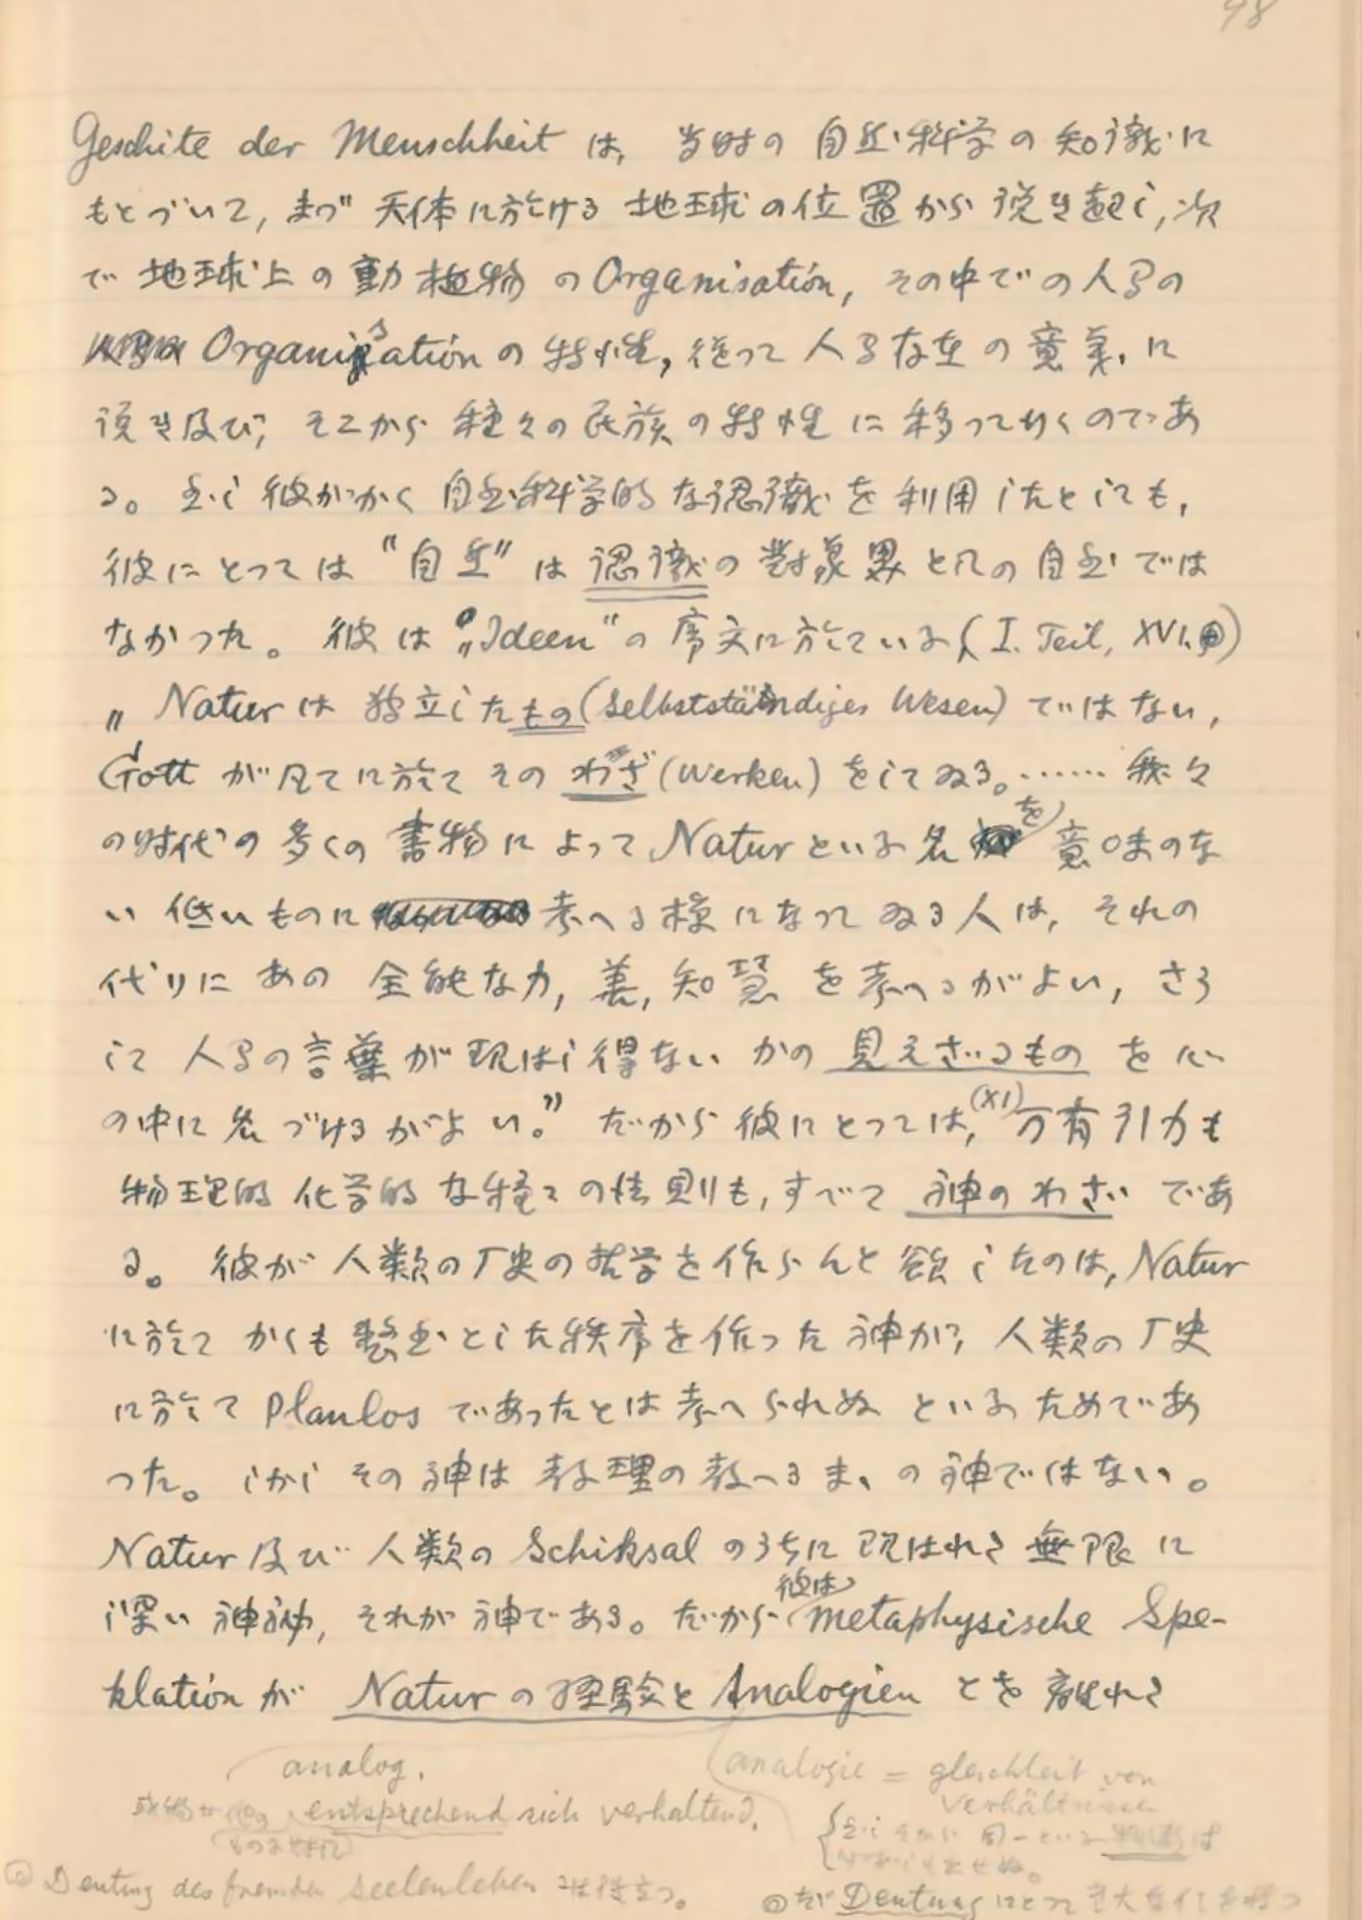 98
Geschite der Menschheit は, 当时の自然科学の知識に
もとづいて, まづ 天体に於ける 地球の位置から 説き起し, 次
で 地球上の動植物の Organisation, その中での人間の
Organisation の特性, 従って人間存在の意義に
説き及び, そこから種々の民族の特性に移って行くのであ
る。然し彼がかく自然科学的な認識を利用したとしても,
彼にとっては "自然" は 認識の對象界としての自然では
なかった。彼は „Ideen" の序文に於ている (I. Teil, XVI.)
„ Natur は 独立したもの (Selbstständiges Wesen) ではない,
Gott が凡てに於て その わざ (Werken) をしてゐる。…… 我々
の时代の多くの書物によって Natur といふ名を意味のな
い 低いものに考へる様になってゐる人は, それの
代りに あの 全能な力, 善, 知慧 を考へるがよい, さう
して 人間の言葉が現はし得ない かの 見えざるもの を心
の中に名づけるがよい。" だから彼にとっては, (XI) 万有引力も
物理的化学的な種々の法則も, すべて 神のわざ であ
る。彼が人類の历史の哲学を作らんと欲したのは, Natur
に於て かくも整然とした秩序を作った神が, 人類の历史
に於て Planlos であったとは考へられぬ といふためであ
った。しかし その神は 教理の教へるまゝの神ではない。
Natur 及び 人類の Schiksal のうちに 現はれる 無限に
深い精神, それが神である。だから 彼は metaphysische Spe-
klation が Natur の経験と Analogien とを 離れる
analog.
entsprechend sich verhaltend.
Analogie = gleichheit von
Verhältnissen
Deutung des fremden Seelenleben には役立つ。
だが Deutung にとって 重大な